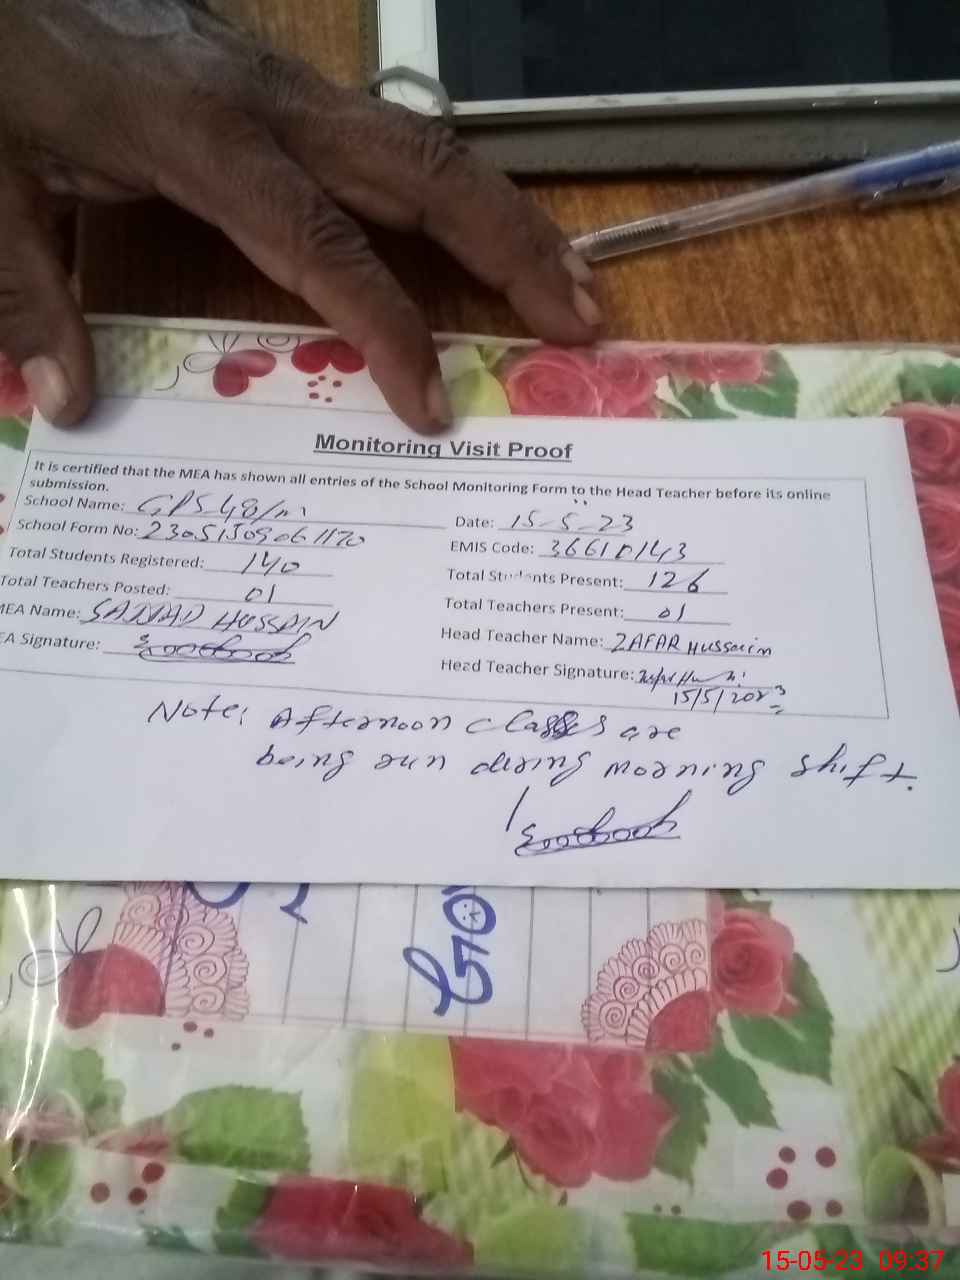 Monitoring Visit Proof
It is certified that the MEA has shown all entries of the School Monitoring Form to the Head Teacher before its online
submission.
School Name: GPS 48/m
Date: 15-5-23
School Form No: 23051509061170
EMIS Code: 36610143
Total Students Registered: 140
Total Students Present: 126
Total Teachers Posted: 01
Total Teachers Present: 01
MEA Name: SAJJAD HUSSAIN
Head Teacher Name: ZAFAR Hussain
EA Signature:
Head Teacher Signature:
15/5/2023
Note: Afternoon classes are
being run during morning shift.
15-05-23 09:37